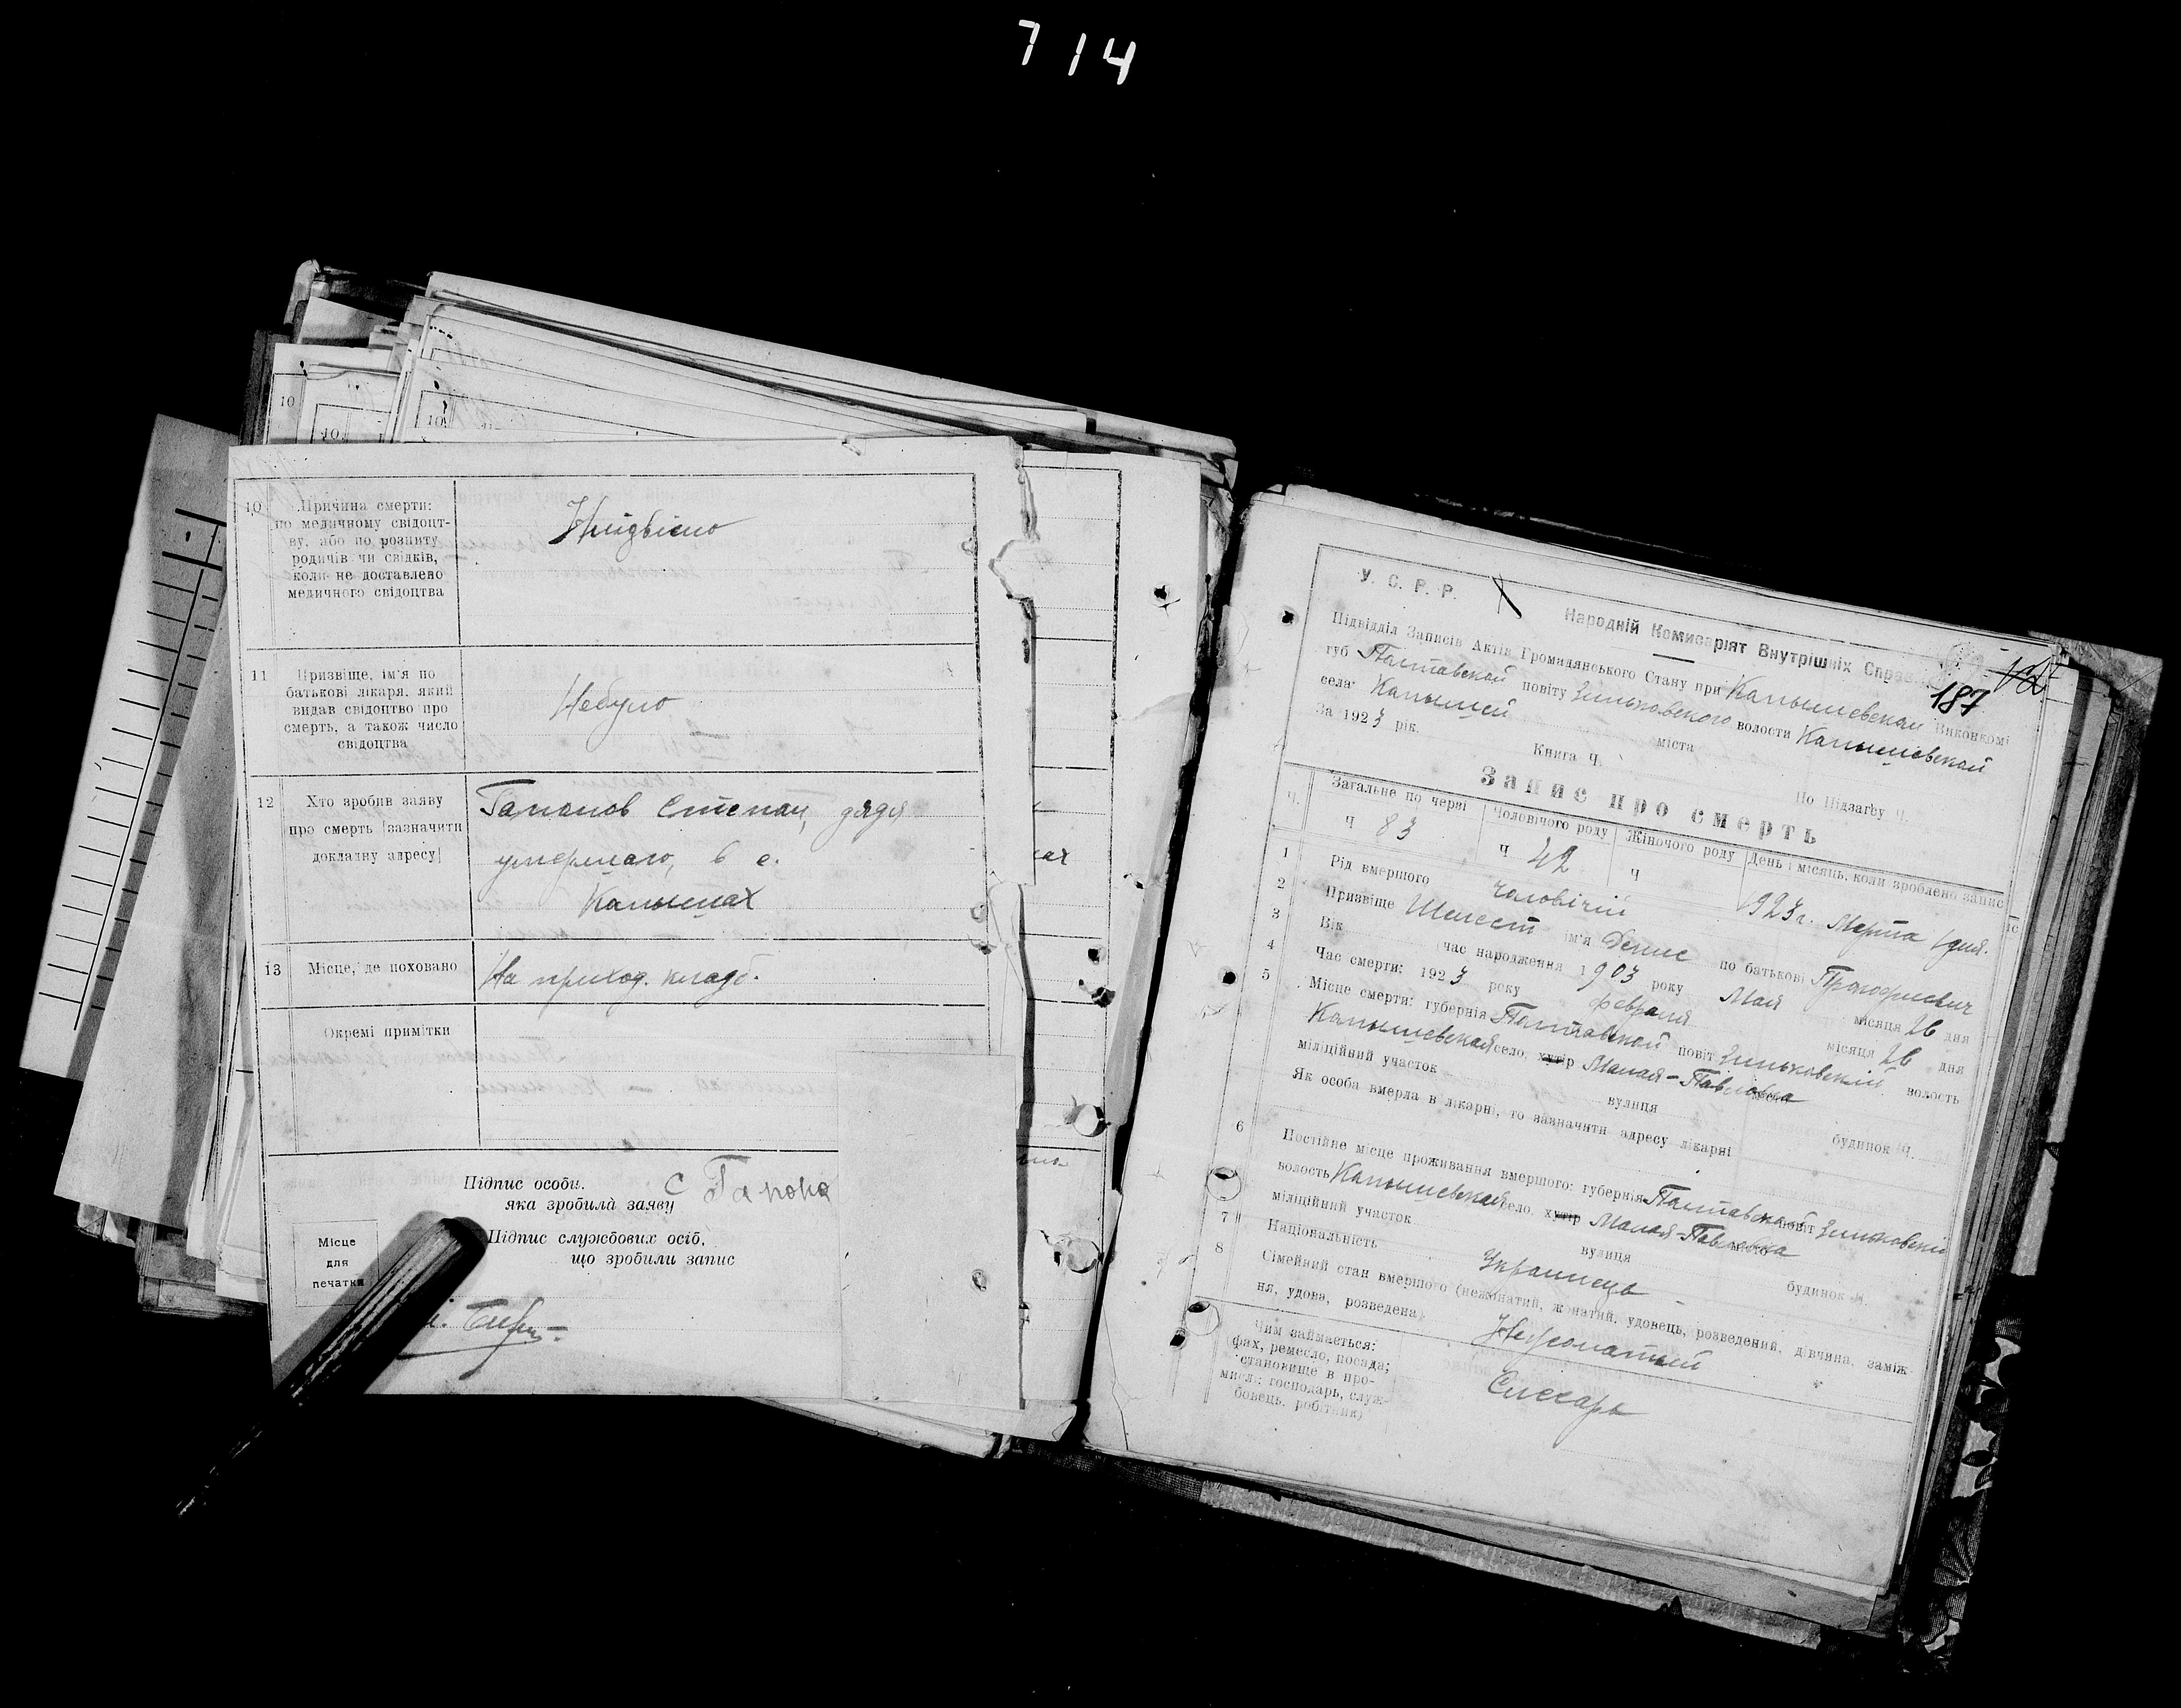 714
10
10
10
10 Причина смерти:
по медичному свідоцт-
ву, або по розпиту
родичів чи свідків,
коли не доставлено
медичного свідоцтва
11 Призвіще, ім'я по
батькові лікаря, який
видав свідоцтво про
смерть, а також число
свідоцтва
Небуло
12 Хто зробив заяву
про смерть (зазначити
докладну адресу)
Гапонов Степан, дядя
умершаго, в с.
Капышах
13 Місце, де поховано
На приход. кладб.
Окремі примітки
Підпис особи,
яка зробила заяву
С Гапона
Підпис службових осіб,
що зробили запис
Місце
для
печатки
У. С. Р. Р.
Народній Комисаріят Внутрішніх Справ
187
Підвідділ Записів Актів Громадянського Стану при Виконкомі
губ Полтавской повіту Зиньковского волости
села міста
За 1923 рік. Книга Ч. По Підзагсу Ч.
Запис про смерть
Ч. Загальне по черві Чоловічого роду Жіночого роду День і місяць, коли зроблено запис
Ч 83 Ч 42 Ч 1923 г. Марта 1 дня.
1 Рід вмершого чоловічий
2 Призвіще Шелест ім'я Денис по батькові Прокофиевич
3 Вік час народження 1903 року Мая місяця 26 дня
4 Час смерти: 1923 року февраля місяця 26 дня
5 Місце смерти: губернія Полтавской повіт Зиньковский волость
село, хутір Малая-Павловка
міліційний участок вулиця будинок Ч.
Як особа вмерла в лікарні, то зазначити адресу лікарні
6 Постійне місце проживання вмершого: губернія Полтавская повіт Зиньковский
волость село, хутір Малая-Павловка
міліційний участок вулиця будинок Ч.
7 Національність Украинець
8 Сімейний стан вмершого (нежонатий, жонатий, удовець, розведений, дівчина, заміж-
ня, удова, розведена) Нежонатый
Чим займається:
фах, ремесло, посада;
становище в про-
мисл.: господарь, служ-
бовець, робітник)
Слесарь